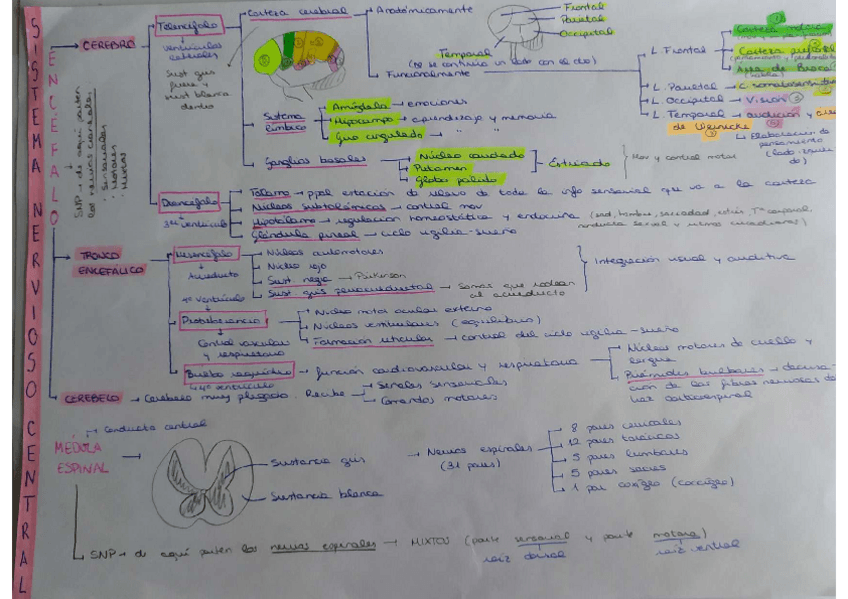 SISTEMA NERVIOSO CENTRAL
ENCÉFALO
CEREBRO
SNP → de aquí parten
los nervios craneales
· Sensoriales
· Motores
· Mixtos
Telencéfalo
ventrículos
laterales
Sust gris
fuera y
sust blanca
dentro
Corteza cerebral
Anatómicamente
Frontal
Parietal
Occipital
Temporal
Funcionalmente
L. Frontal
Corteza motora
Corteza prefrontal
Área de Broca
L. Parietal → C. somatosensitiva
L. Occipital → Visión
L. Temporal → audición y área
de Wernicke
Elaboración de
pensamiento
Sistema
límbico
Amígdala → emociones
Hipocampo → aprendizaje y memoria
Giro cingulado → " "
Ganglios basales
Núcleo caudado
Putamen
Globo pálido
Estriado
Mov y control motor
Diencéfalo
3er ventrículo
Tálamo → ppal estación de relevo de toda la info sensorial que va a la corteza
Núcleos subtalámicos → control mov
Hipotálamo → regulación homeostática y endocrina (sed, hambre, saciedad, estrés, Tª corporal,
conducta sexual y ritmos circadianos)
Glándula pineal → ciclo vigilia-sueño
TRONCO
ENCEFÁLICO
Mesencéfalo
Acueducto
Núcleo rojo
Sust. negra → Parkinson
Sust gris periacueductal → Somas que rodean
al acueducto
Integración visual y auditiva
4º ventrículo
Protuberancia
Control vascular
y respiratorio
Núcleo motor ocular externo
Núcleos vestibulares (equilibrio)
Formación reticular → control del ciclo vigilia-sueño
Bulbo raquídeo
4º ventrículo
función cardiovascular y respiratoria
Núcleos motores de cuello y
lengua
Pirámides bulbares → decusa-
ción de las fibras nerviosas del
haz corticoespinal
CEREBELO → Cerebelo muy plegado. Recibe
Señales sensoriales
Comandos motores
Conducto central
MÉDULA
ESPINAL
Sustancia gris
Sustancia blanca
Nervios espinales
(31 pares)
8 pares cervicales
12 pares torácicos
5 pares lumbares
5 pares sacros
1 par coxígeo (coccígeo)
SNP → de aquí parten los nervios espinales → MIXTOS (parte sensorial y parte motora)
raíz dorsal
raíz ventral